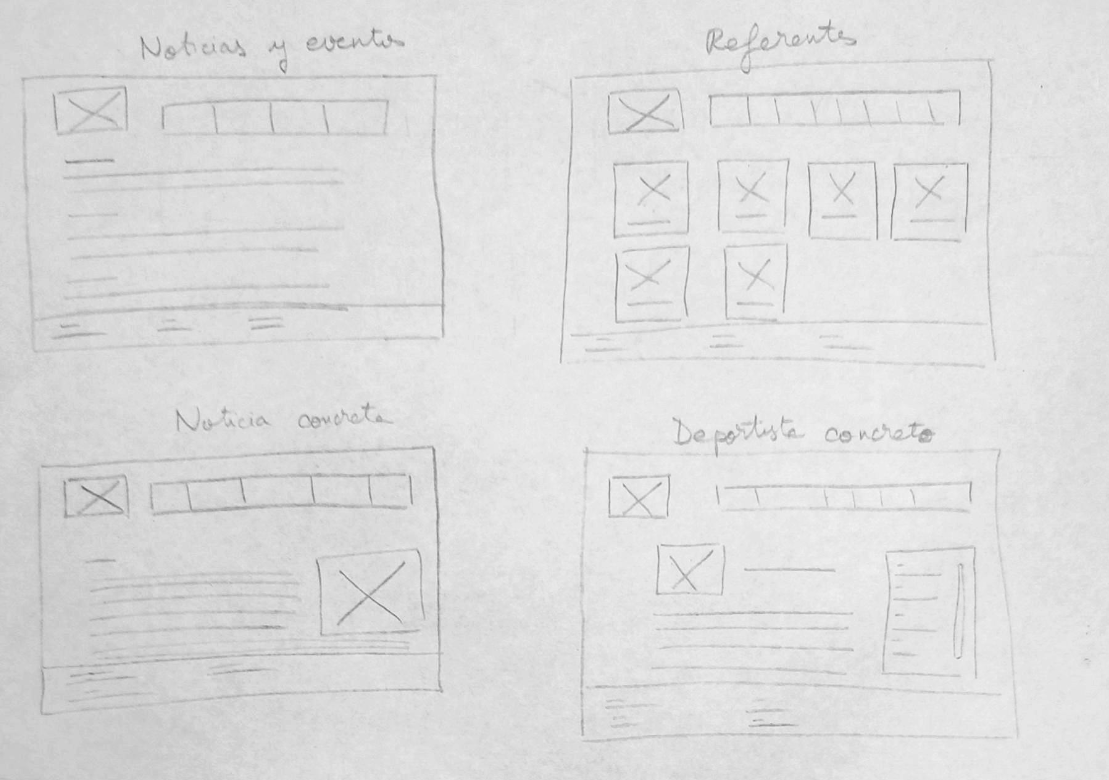 Noticias y eventos
Referentes
Noticia concreta
Deportista concreto